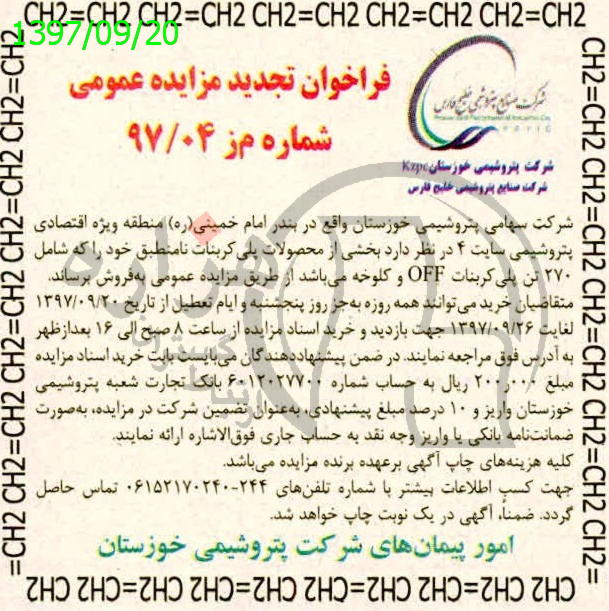 CH2=CH2 CH2=CH2 CH2=CH2 CH2=CH2 CH2=CH2
1397/09/20
فراخوان تجدید مزایده عمومی
شماره م‌ز ۹۷/۰۴
شرکت صنایع پتروشیمی خلیج فارس
شرکت پتروشیمی خوزستان Kzpc
شرکت صنایع پتروشیمی خلیج فارس
شرکت سهامی پتروشیمی خوزستان واقع در بندر امام خمینی(ره) منطقه ویژه اقتصادی
پتروشیمی سایت ۴ در نظر دارد بخشی از محصولات پلی‌کربنات نامنطبق خود را که شامل
۲۷۰ تن پلی‌کربنات OFF و کلوخه می‌باشد از طریق مزایده عمومی به‌فروش برساند.
متقاضیان خرید می‌توانند همه روزه به‌جز روز پنجشنبه و ایام تعطیل از تاریخ ۱۳۹۷/۰۹/۲۰
لغایت ۱۳۹۷/۰۹/۲۶ جهت بازدید و خرید اسناد مزایده از ساعت ۸ صبح الی ۱۶ بعدازظهر
به آدرس فوق مراجعه نمایند. در ضمن پیشنهاددهندگان می‌بایست بابت خرید اسناد مزایده
مبلغ ۲۰۰,۰۰۰ ریال به حساب شماره ۶۰۱۲۰۲۷۷۰۰ بانک تجارت شعبه پتروشیمی
خوزستان واریز و ۱۰ درصد مبلغ پیشنهادی، به‌عنوان تضمین شرکت در مزایده، به‌صورت
ضمانت‌نامه بانکی یا واریز وجه نقد به حساب جاری فوق‌الاشاره ارائه نمایند.
کلیه هزینه‌های چاپ آگهی برعهده برنده مزایده می‌باشد.
جهت کسب اطلاعات بیشتر با شماره تلفن‌های ۲۴۴-۰۶۱۵۲۱۷۰۲۴۰ تماس حاصل
گردد. ضمناً، آگهی در یک نوبت چاپ خواهد شد.
امور پیمان‌های شرکت پتروشیمی خوزستان
CH2 CH2=CH2 CH2=CH2 CH2=CH2 CH2=CH2 CH2